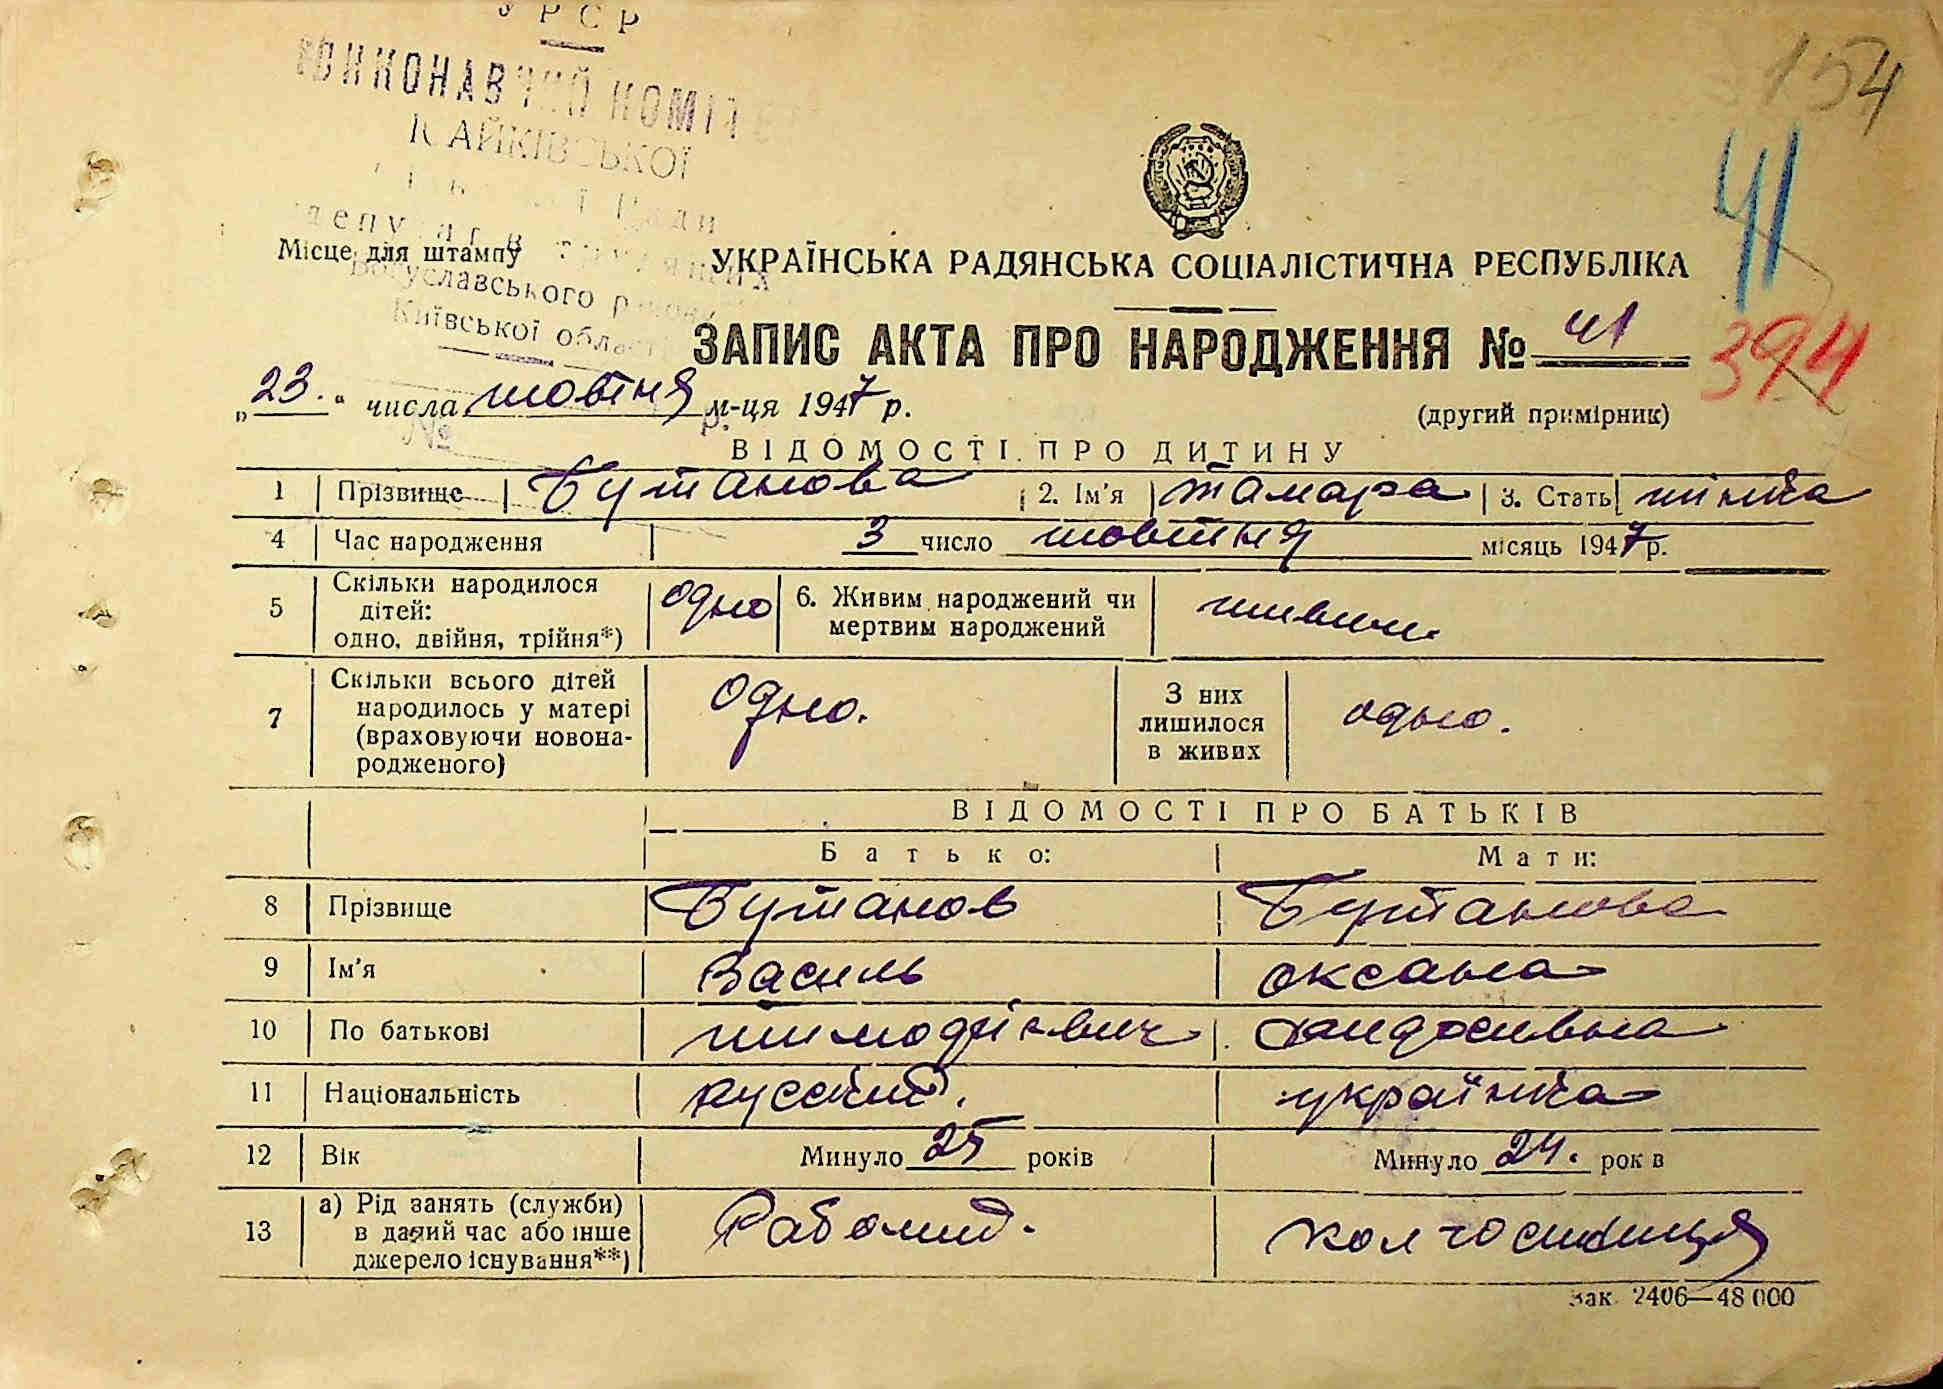 УРСР
ВИКОНАВЧИЙ КОМІТЕТ
ІСАЙКІВСЬКОЇ
Ради
депутатів трудящих
Богуславського району
Київської області
Місце для штампу
№ р.
154
41
394
УКРАЇНСЬКА РАДЯНСЬКА СОЦІАЛІСТИЧНА РЕСПУБЛІКА
ЗАПИС АКТА ПРО НАРОДЖЕННЯ № 41
„23.“ числа жовтня м-ця 1947 р.
(другий примірник)
ВІДОМОСТІ ПРО ДИТИНУ
1 Прізвище Бутанова 2. Ім'я Тамара 3. Стать жінка
4 Час народження 3 число жовтня місяць 1947 р.
5 Скільки народилося дітей: одно, двійня, трійня*) одно 6. Живим народжений чи мертвим народжений живим
7 Скільки всього дітей народилось у матері (враховуючи новонародженого) Одно. З них лишилося в живих одно.
ВІДОМОСТІ ПРО БАТЬКІВ
Батько: Мати:
8 Прізвище Бутанов Бутанова
9 Ім'я Василь Оксана
10 По батькові
11 Національність русский. українка
12 Вік Минуло 25 років Минуло 24. років
13 а) Рід занять (служби) в даний час або інше джерело існування**) колгоспниця
Зак. 2406—48 000